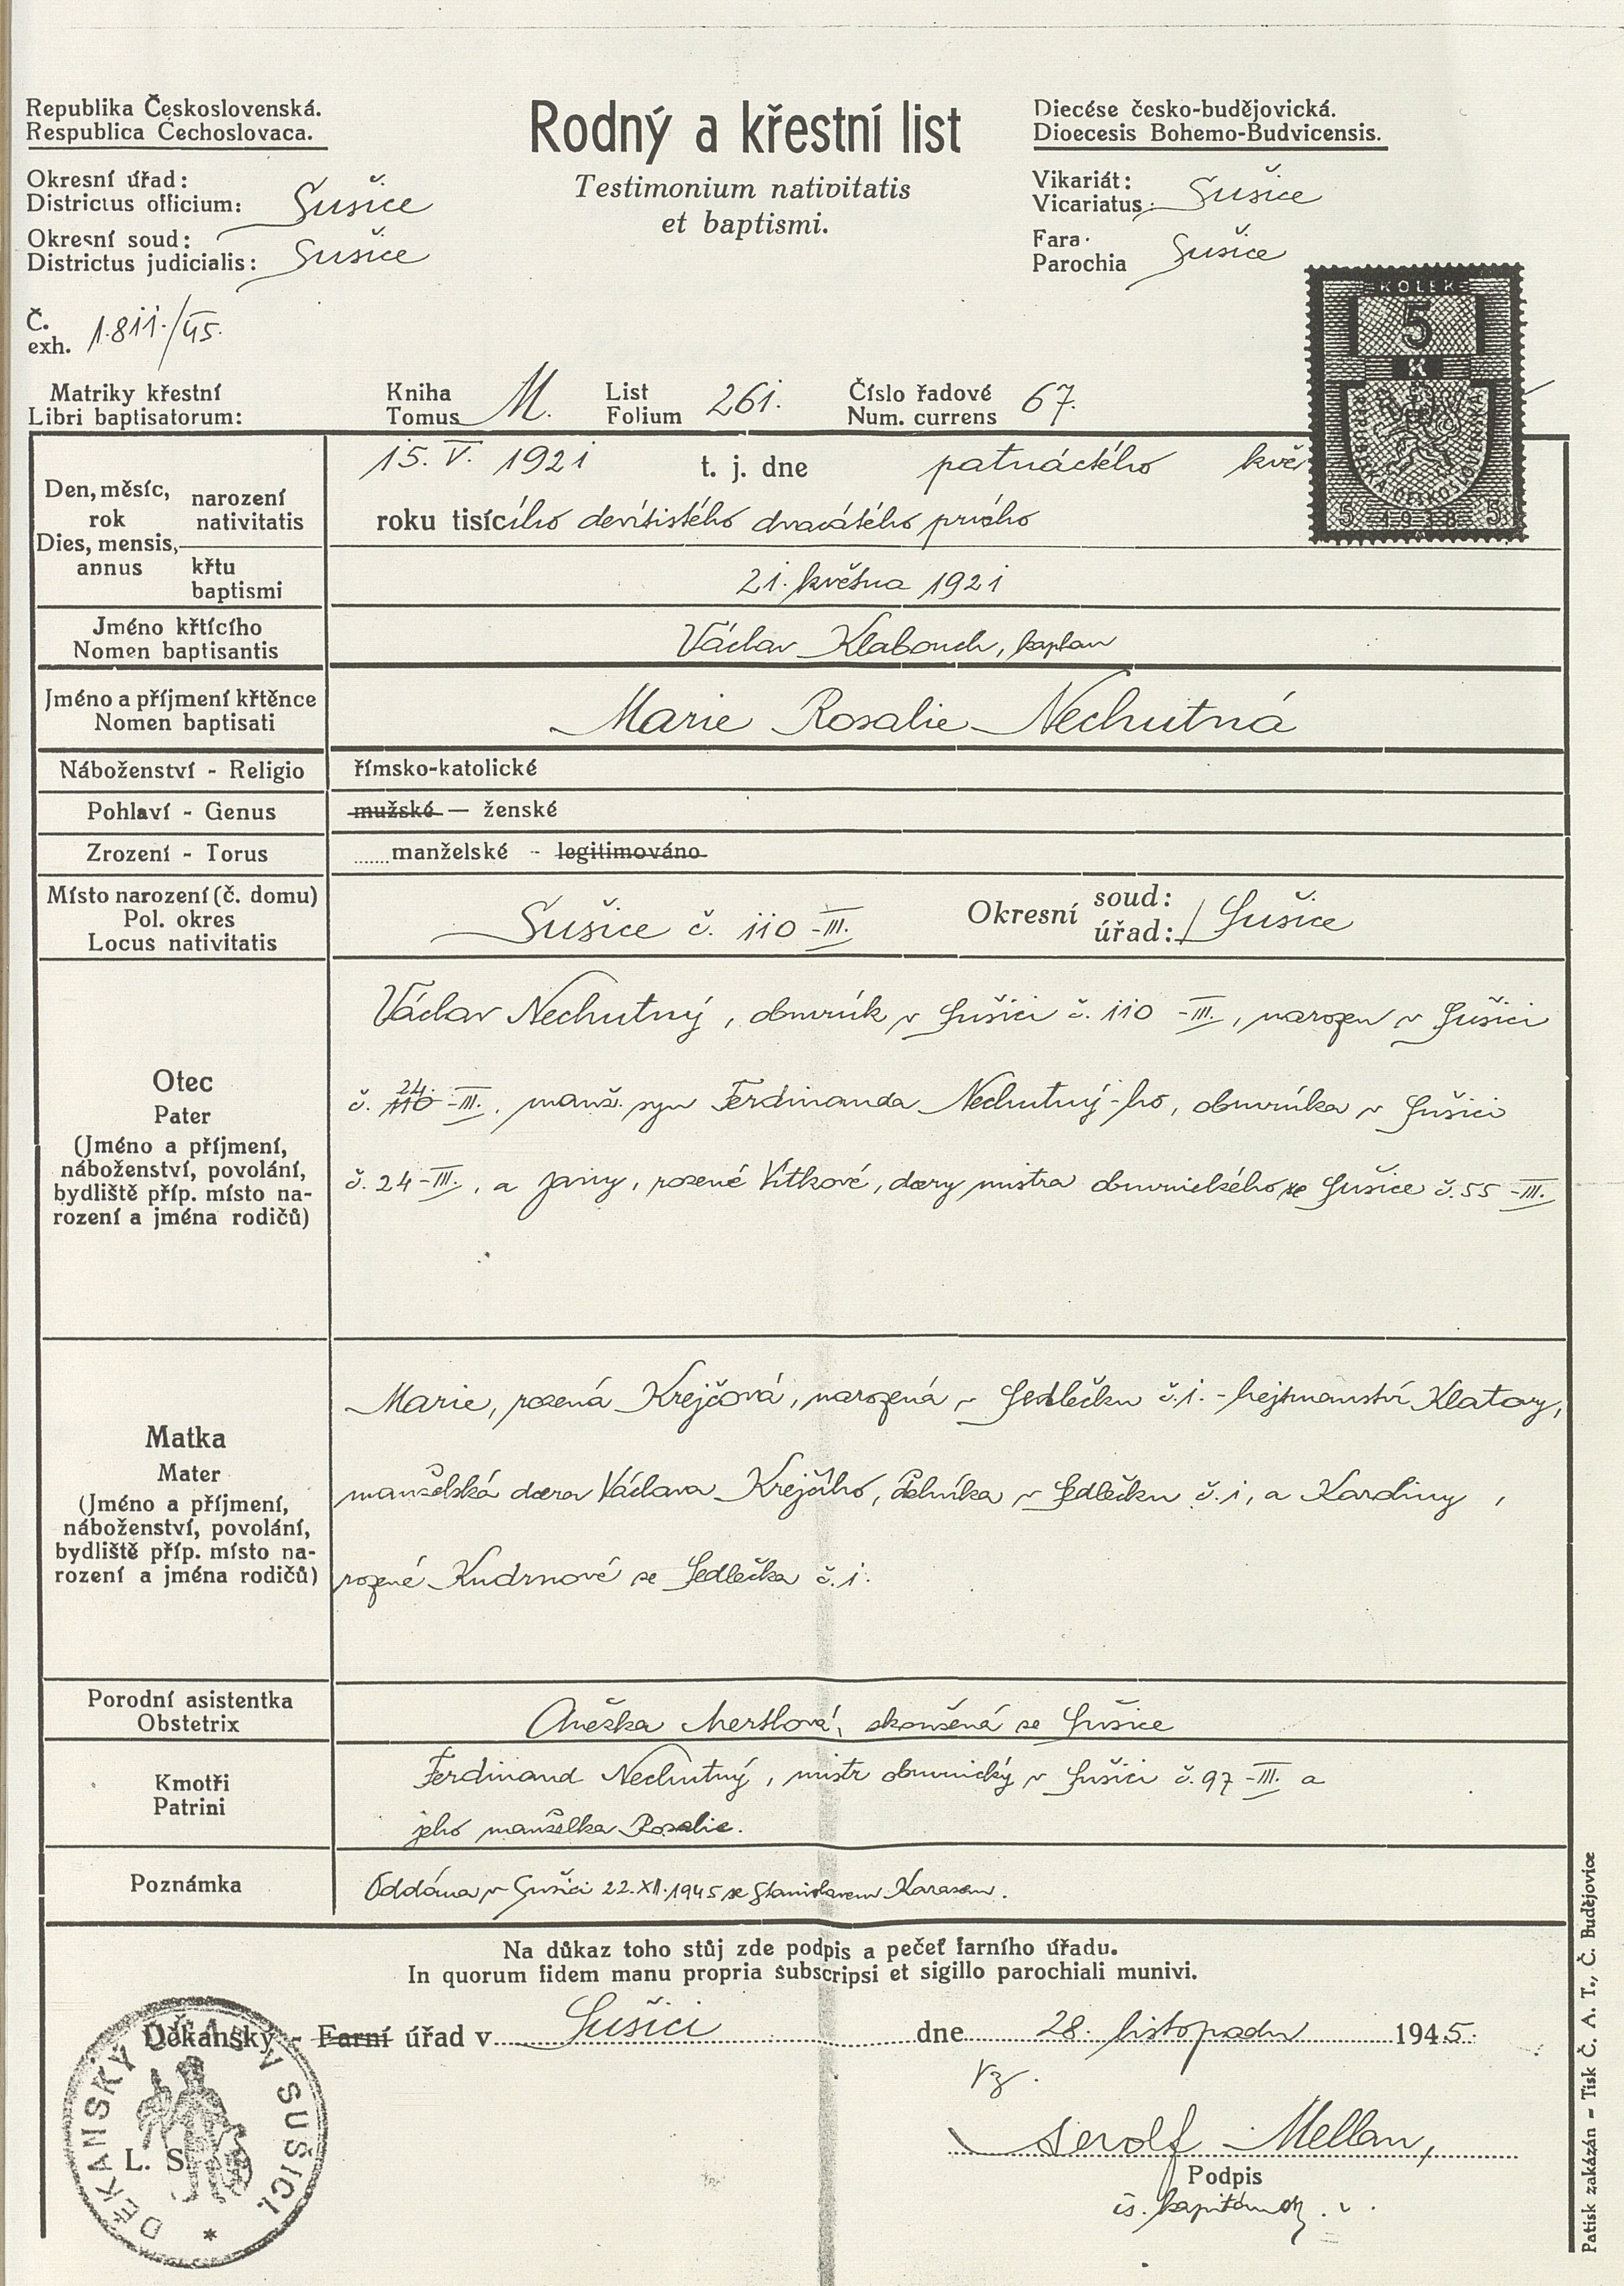 Republika Československá.
Respublica Čechoslovaca.
Rodný a křestní list
Testimonium nativitatis
et baptismi.
Diecése česko-budějovická.
Dioecesis Bohemo-Budvicensis.
Okresní úřad:
Districtus officium: Sušice
Okresní soud:
Districtus judicialis: Sušice
Vikariát:
Vicariatus: Sušice
Fara
Parochia Sušice
Č.
exh. 1.811./45.
KOLEK
5
K
5 1938 5
Matriky křestní
Libri baptisatorum:
Kniha
Tomus M.
List
Folium 261.
Číslo řadové
Num. currens 67.
Den, měsíc,
rok
Dies, mensis,
annus
narození
nativitatis
15. V. 1921 t. j. dne patnáctého kvě
roku tisícího devítistého dvacátého prvého
křtu
baptismi
21. května 1921
Jméno křtícího
Nomen baptisantis
Václav Klabouch, kaplan
Jméno a příjmení křtěnce
Nomen baptisati
Marie Rosalie Nechutná
Náboženství - Religio
římsko-katolické
Pohlaví - Genus
mužské — ženské
Zrození - Torus
manželské - legitimováno
Místo narození (č. domu)
Pol. okres
Locus nativitatis
Sušice č. 110 -III.
Okresní soud:
úřad: Sušice
Otec
Pater
(Jméno a příjmení,
náboženství, povolání,
bydliště příp. místo na-
rození a jména rodičů)
Václav Nechutný, obuvník v Sušici č. 110 -III., narozen v Sušici
č. 110 24 -III., manž. syn Ferdinanda Nechutný-ho, obuvníka v Sušici
č. 24 -III., a Jany, rozené Vítkové, dcery mistra obuvnického ze Sušice č. 55 -III.
Matka
Mater
(Jméno a příjmení,
náboženství, povolání,
bydliště příp. místo na-
rození a jména rodičů)
Marie, rozená Krejčová, narozená v Sedlečku č. 1. - hejtmanství Klatovy,
manželská dcera Václava Krejčího, v Sedlečku č. 1, a Karoliny,
rozené Kudrnové ze Sedlečka č. 1.
Porodní asistentka
Obstetrix
Anežka zkoušená ze Sušice
Kmotři
Patrini
Ferdinand Nechutný, mistr obuvnický v Sušici č. 97 -III. a
jeho manželka Rosalie.
Poznámka
Oddána v Sušici 22.XII.1945 se Stanislavem Karasem.
Na důkaz toho stůj zde podpis a pečeť farního úřadu.
In quorum fidem manu propria subscripsi et sigillo parochiali munivi.
Děkanský - Farní úřad v Sušici dne 28. listopadu 1945.
vz.
Mellan,
Podpis
L. S.
DĚKANSKÝ ÚŘAD V SUŠICI.
Patisk zakázán – Tisk Č. A. T., Č. Budějovice